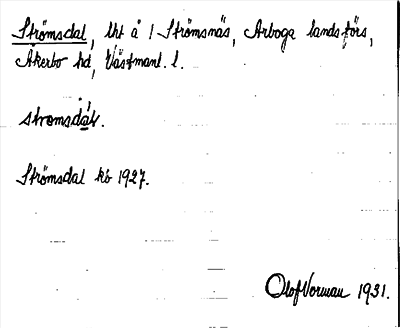 Strömsdal, lht å 1 Strömsnäs, Arboga landsförs,
Åkerbo hd, Västmanl. l.
stromsdáḷ.
Strömsdal kb 1927.
Olof Norman 1931.